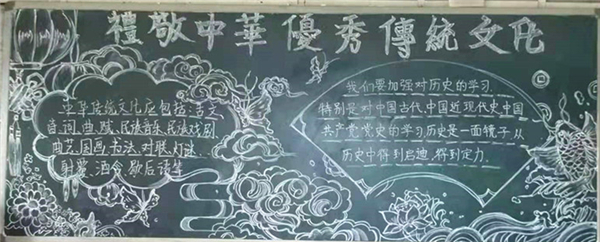 禮敬中華優秀傳統文化
中华传统文化应包括:古文、
诗、词、曲、赋、民族音乐、民族戏剧、
曲艺、国画、书法、对联、灯谜、
射覆、酒令、歇后语等
我们要加强对历史的学习,
特别是对中国古代、中国近现代史、中国
共产党党史的学习,历史是一面镜子,从
历史中得到启迪、得到定力。